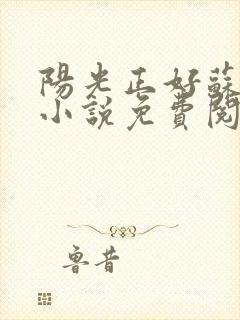 陽光正好蘇
小說免費閱
魯昔